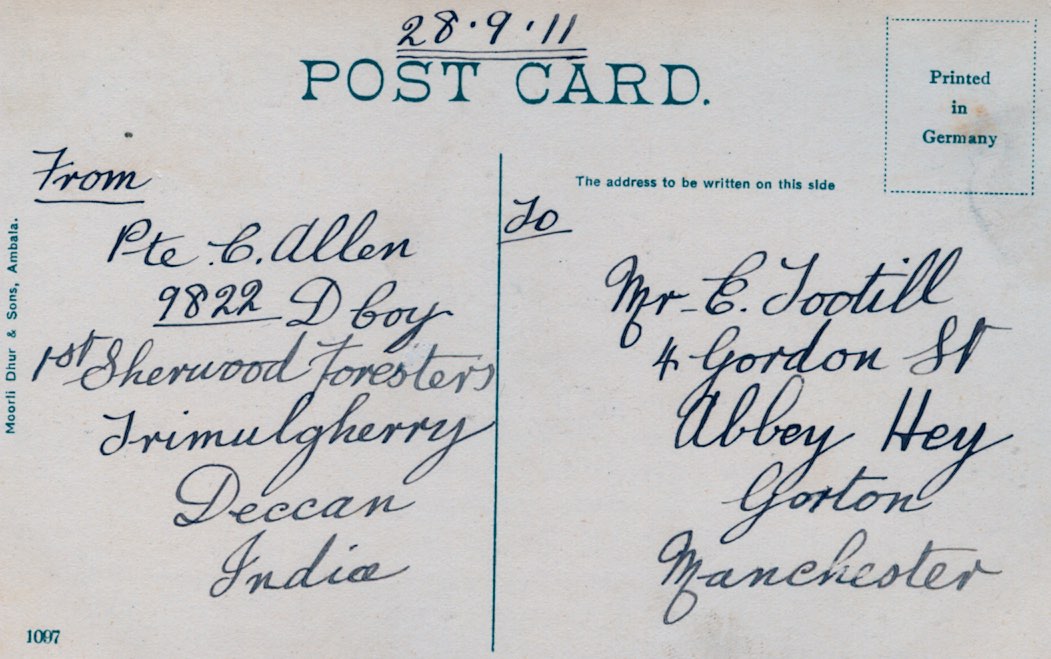 28.9.11
POST CARD.
Printed
in
Germany
The address to be written on this side
Moorli Dhur & Sons, Ambala.
From
Pte C. Allen
9822 D Coy
1st Sherwood Foresters
Trimulgherry
Deccan
India
To
Mr. E. Tootill
4 Gordon St
Abbey Hey
Gorton
Manchester
1097